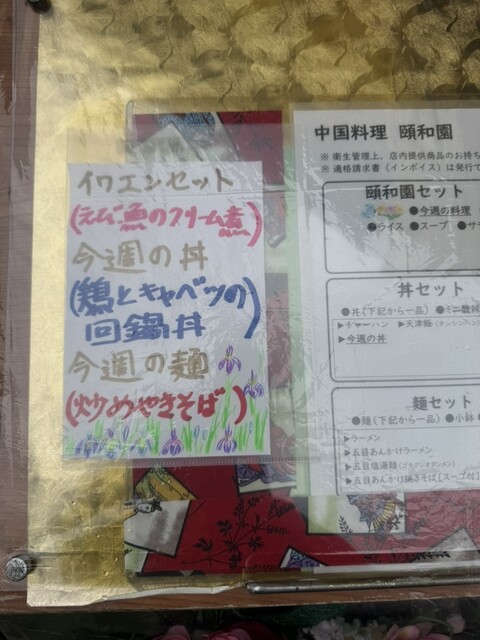 イワエンセット
(えび魚のクリーム煮)
今週の丼
(鶏とキャベツの
回鍋丼)
今週の麺
(炒めやきそば)
中国料理 頤和園
※ 衛生管理上、店内提供商品のお持ち
※ 適格請求書（インボイス）は発行で
頤和園セット
●今週の料理
●ライス ●スープ ●サ
丼セット
●丼（下記から一品） ●ミニ麺
▶チャーハン ▶天津飯
▶今週の丼
麺セット
●麺（下記から一品） ●小鉢
▶ラーメン
▶五目あんかけラーメン
▶五目塩湯麺
▶五目あんかけ焼きそば【スープ付】